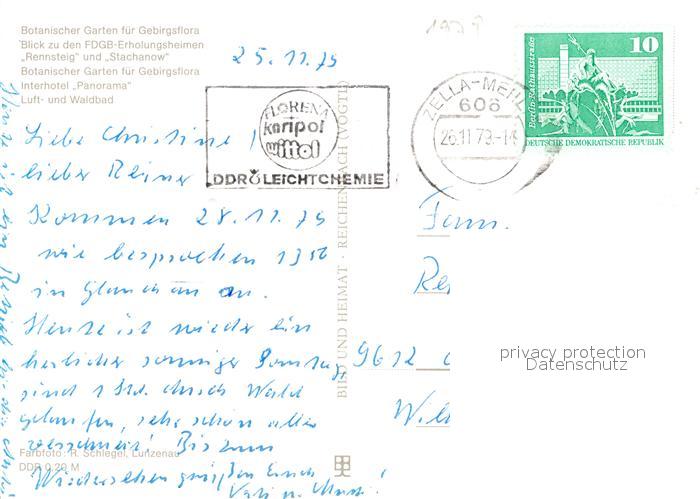 Botanischer Garten für Gebirgsflora
Blick zu den FDGB-Erholungsheimen
„Rennsteig" und „Stachanow"
Botanischer Garten für Gebirgsflora
Interhotel „Panorama"
Luft- und Waldbad
25.11.79
Liebe Christine!
lieber Reiner
Kommen 28.11.79
wie besprochen 13 50
in Glauchau an.
Heute ist wieder ein
herrlicher sonniger Sonntag,
sind 1 Std. durch Wald
gelaufen, sehr schön alles
verschneit! Bis zum
Wiedersehen grüßen Euch
Vati u. Mutti!
Farbfoto: R. Schlegel, Lunzenau
DDR 0,20 M
BILD UND HEIMAT · REICHENBACH (VOGTL)
FLORENA
karipol
wittol
DDR LEICHTCHEMIE
ZELLA-MEHL
606
26.11.79
10
Berlin, Rathausstraße
DEUTSCHE DEMOKRATISCHE REPUBLIK
Fam.
Re
9612
Wil
privacy protection
Datenschutz